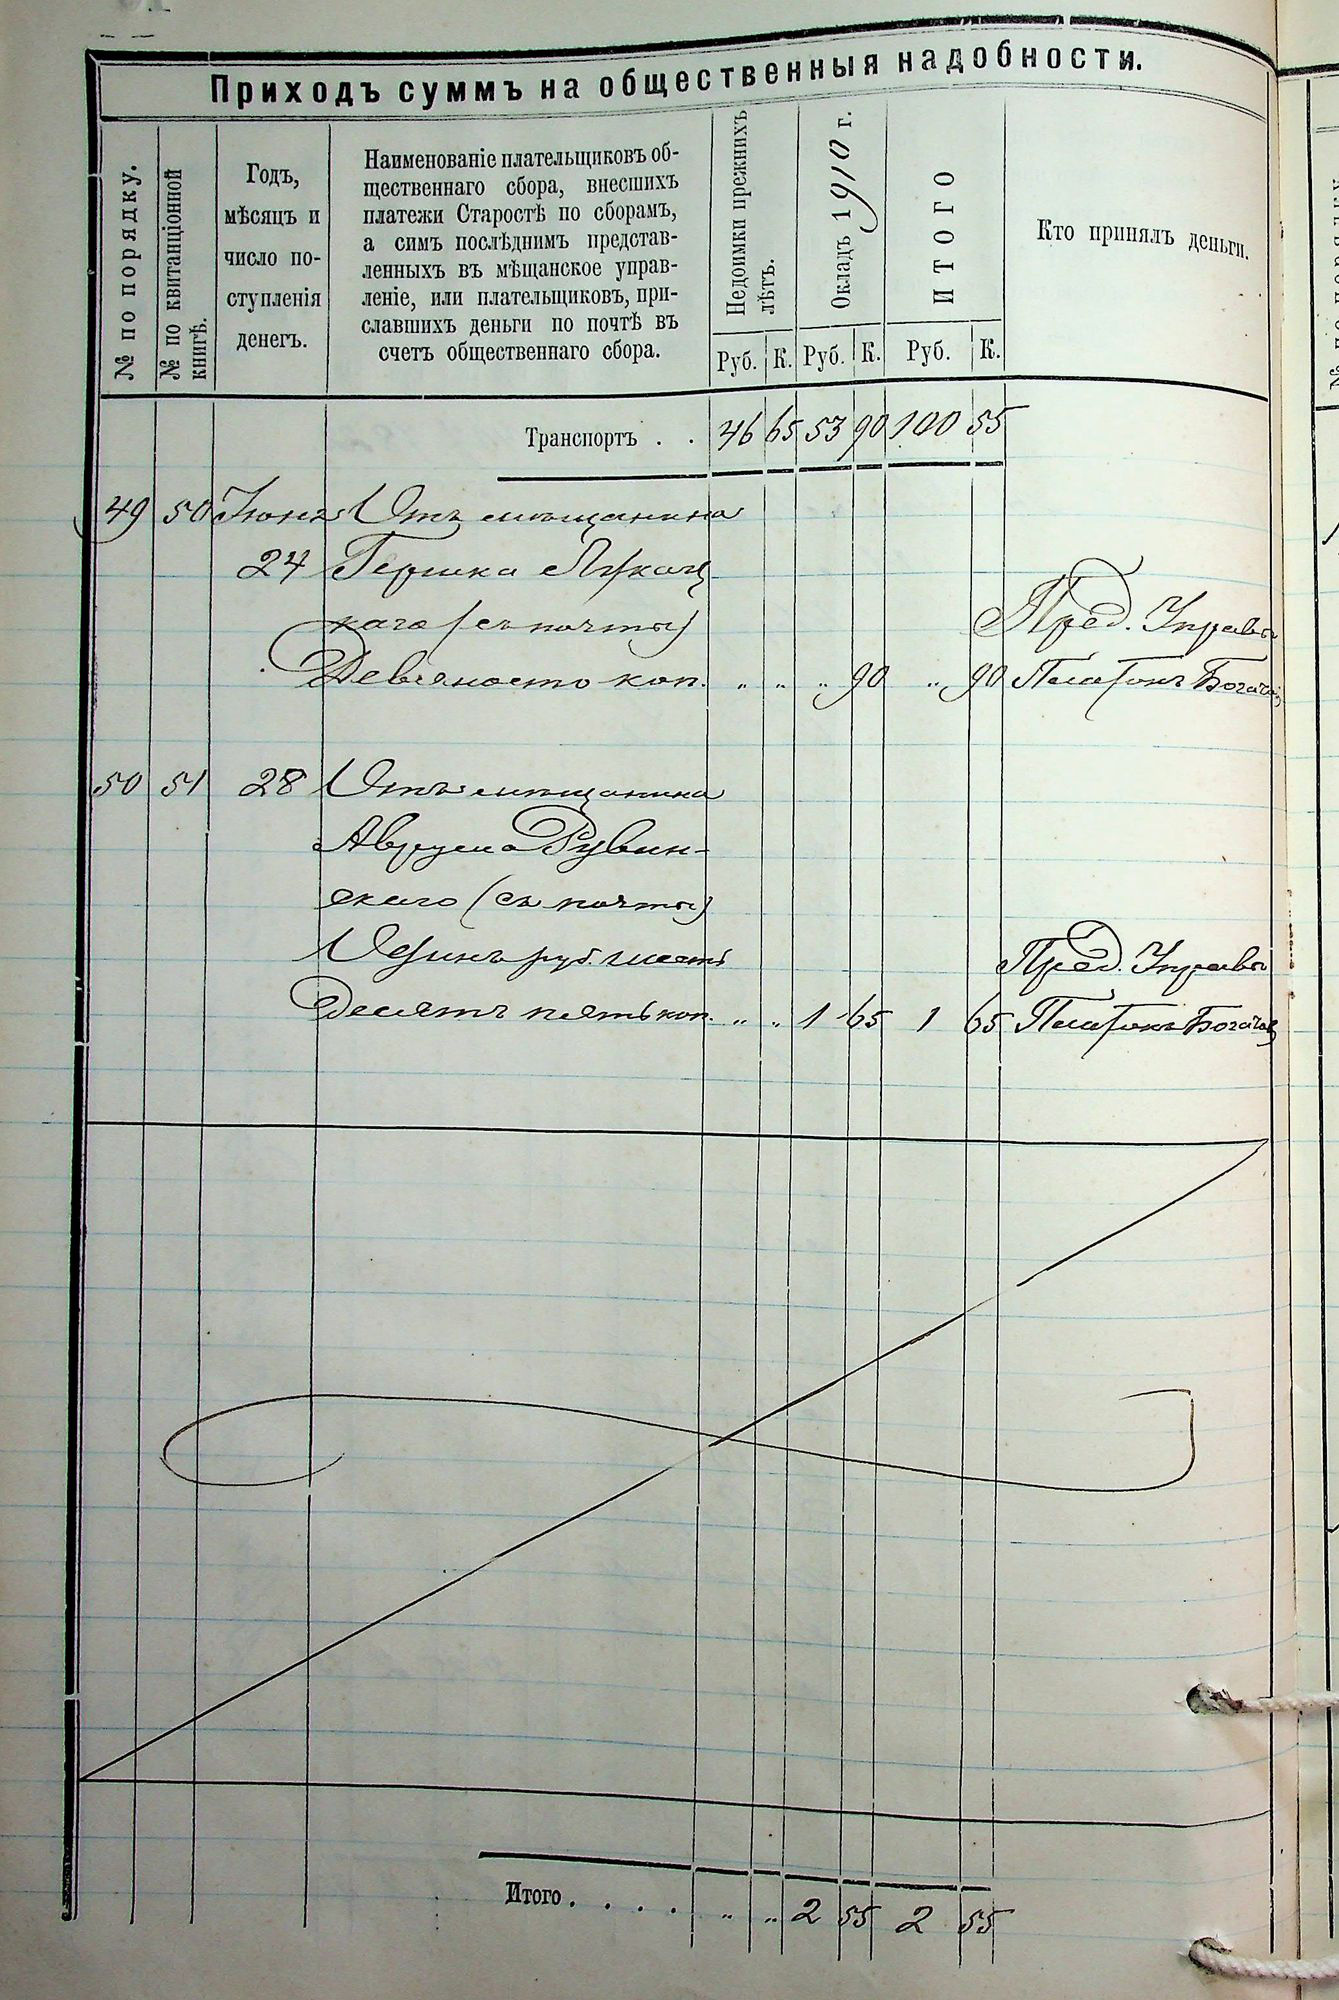 Приходъ суммъ на общественныя надобности.
№ по порядку.
№ по квитанціонной
книгѣ.
Годъ,
мѣсяцъ и
число по-
ступленія
денегъ.
Наименованіе плательщиковъ об-
щественнаго сбора, внесшихъ
платежи Старостѣ по сборамъ,
а симъ послѣднимъ представ-
ленныхъ въ мѣщанское управ-
леніе, или плательщиковъ, при-
славшихъ деньги по почтѣ въ
счетъ общественнаго сбора.
Недоимки прежнихъ
лѣтъ.
Окладъ 1910 г.
ИТОГО
Кто принялъ деньги.
Руб. К. Руб. К. Руб. К.
Транспортъ . . 46 65 53 90 100 55
49 50 Іюня Отъ мѣщанина
24 Гершка
каго (съ почты) Пред. Управы
Девяносто коп. " " " 90 " 90 Платонъ Богачов
50 51 28 Отъ мѣщанина
Аврума Рувин-
скаго (съ почты)
Одинъ руб. шесть Пред. Управы
десятъ пять коп. " " 1 65 1 65 Платонъ Богачов
Итого . . . . " " 2 55 2 55